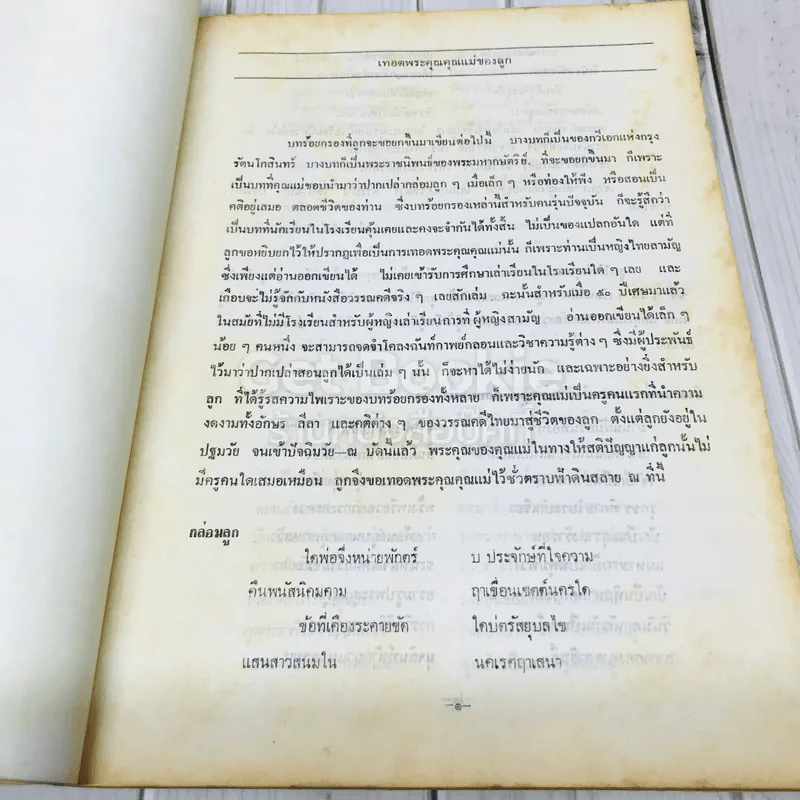 เทอดพระคุณคุณแม่ของลูก
บทร้อยกรองที่ลูกจะขอยกขึ้นมาเขียนต่อไปนี้ บางบทก็เป็นของกวีเอกแห่งกรุง
รัตนโกสินทร์ บางบทก็เป็นพระราชนิพนธ์ของพระมหากษัตริย์, ที่จะขอยกขึ้นมา ก็เพราะ
เป็นบทที่คุณแม่ชอบนำมาว่าปากเปล่ากล่อมลูก ๆ เมื่อเล็ก ๆ หรือท่องให้ฟัง หรือสอนเป็น
คติอยู่เสมอ ตลอดชีวิตของท่าน ซึ่งบทร้อยกรองเหล่านี้สำหรับคนรุ่นปัจจุบัน ก็จะรู้สึกว่า
เป็นบทที่นักเรียนในโรงเรียนคุ้นเคยและคงจะจำกันได้ทั้งสิ้น ไม่เป็นของแปลกอันใด แต่ที่
ลูกขอหยิบยกไว้ให้ปรากฏเพื่อเป็นการเทอดพระคุณคุณแม่นั้น ก็เพราะท่านเป็นหญิงไทยสามัญ
ซึ่งเพียงแต่อ่านออกเขียนได้ ไม่เคยเข้ารับการศึกษาเล่าเรียนในโรงเรียนใด ๆ เลย และ
เกือบจะไม่รู้จักกับหนังสือวรรณคดีจริง ๆ เลยสักเล่ม ฉะนั้นสำหรับเมื่อ ๕๐ ปีเศษมาแล้ว
ในสมัยที่ไม่มีโรงเรียนสำหรับผู้หญิงเล่าเรียนการที่ ผู้หญิงสามัญ อ่านออกเขียนได้เล็ก ๆ
น้อย ๆ คนหนึ่ง จะสามารถจดจำโคลงฉันท์กาพย์กลอนและวิชาความรู้ต่าง ๆ ซึ่งมีผู้ประพันธ์
ไว้มาว่าปากเปล่าสอนลูกได้เป็นเล่ม ๆ นั้น ก็จะหาได้ไม่ง่ายนัก และเฉพาะอย่างยิ่งสำหรับ
ลูก ที่ได้รู้รสความไพเราะของบทร้อยกรองทั้งหลาย ก็เพราะคุณแม่เป็นครูคนแรกที่นำความ
งดงามทั้งอักษร ลีลา และคติต่าง ๆ ของวรรณคดีไทยมาสู่ชีวิตของลูก ตั้งแต่ลูกยังอยู่ใน
ปฐมวัย จนเข้าปัจฉิมวัย—ณ บัดนี้แล้ว พระคุณของคุณแม่ในทางให้สติปัญญาแก่ลูกนั้นไม่
มีครูคนใดเสมอเหมือน ลูกจึงขอเทอดพระคุณคุณแม่ไว้ชั่วตราบฟ้าดินสลาย ณ ที่นี้
กล่อมลูก
ใดพ่อจึ่งหน่ายพักตร์ บ ประจักษ์ที่ใจความ
คืนพนัสนิคมคาม ฤาเขื่อนเขตต์นครใด
ข้อที่เคืองระคายขัด ใดบ่ตรัสยุบลไข
แสนสาวสนมใน นคเรศฤาเสนา
—๑—
Get Bookie